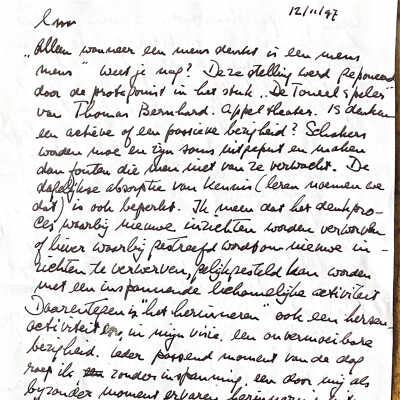 12/11/97
„Alleen wanneer een mens denkt is een mens
mens" weet je nog? Deze stelling werd geponeerd
door de protagonist in het stuk „De Toneelspeler"
van Thomas Bernhard. Appeltheater. Is denken
een actieve of een passieve bezigheid? Schakers
worden moe en zijn soms uitgeput en maken
dan fouten die men niet van ze verwacht. De
dagelijkse absorptie van kennis (leren noemen we
dat) is ook beperkt. Ik meen dat het denkpro-
ces waarbij nieuwe inzichten worden verworven
of liever waarbij gestreefd wordt om nieuwe in-
zichten te verwerven, gelijkgesteld kan worden
met een inspannende lichamelijke activiteit
Daarentegen is "het herinneren" ook een hersen-
activiteit, in mijn visie, een onvermoeibare
bezigheid. Ieder passend moment van de dag
roep ik zonder inspanning, een door mij als
bijzonder moment ervaren